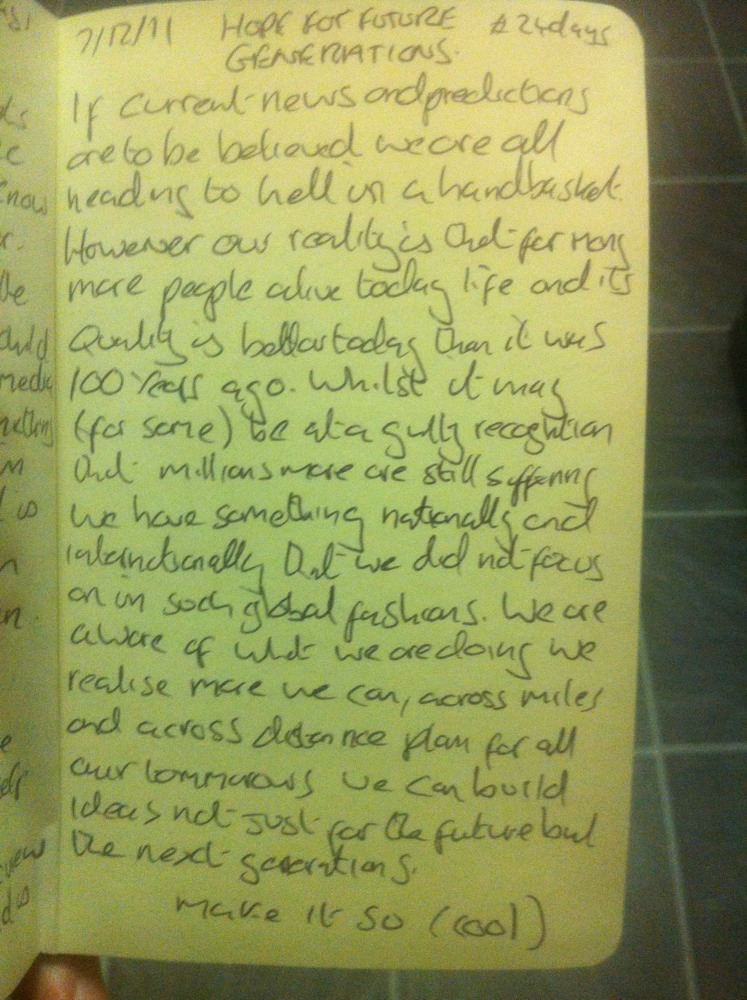 7/12/11 HOPE FOR FUTURE #24days
GENERATIONS.
If current news and predictions
are to be believed we are all
heading to hell in a handbasket.
However our reality is that for many
more people alive today life and its
Quality is better today than it was
100 years ago. Whilst it may
(for some) be at a guilty recognition
that millions more are still suffering
we have something nationally and
internationally that we did not focus
on in such global fashions. We are
aware of what we are doing we
realise more we can, across miles
and across distance plan for all
our tommorows we can build
ideas not just for the future but
the next generations.
Make it so (cool)
know
media
view